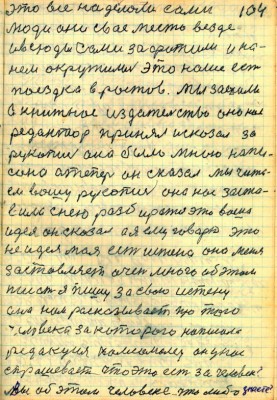 это все наделоли сами 104
люди они свае место везде
и всюды сами захватили и на
нем окружили Это наше ест
поездка в ростов. мы заехали
в книжное издателство оно нас
редактор принял и сказал за
рукотис она было мною напи-
сано а тепер он сказал мы чита-
ем вашу рукопис она нас заста-
вила снею разбиратся это ваша
идея он сказал а я ему говорю это
не идея моя ест истено она меня
заставляет очен много об этом
писат я пишу за свою истену
она нам расказывает про того
человека за которого написала
редакция комсомолец он у нас
спрашевает что это ест за человек?
Мы об этом человеке что либо знаете